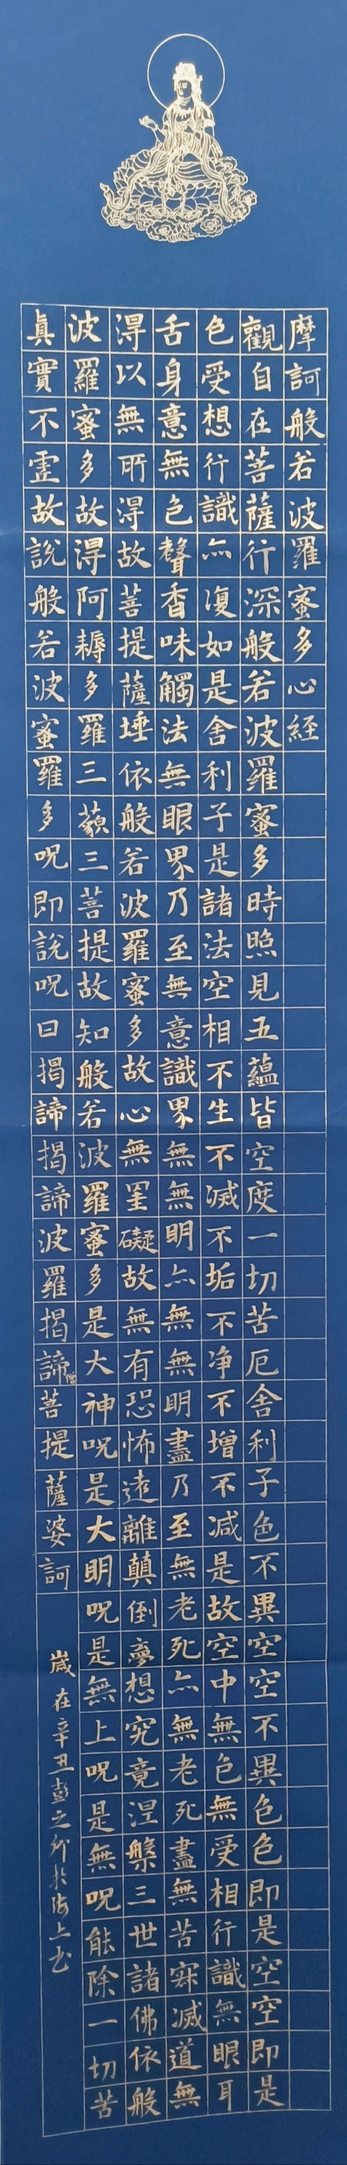 摩訶般若波羅蜜多心經
觀自在菩薩行深般若波羅蜜多時照見五蘊皆空度一切苦厄舍利子色不異空空不異色色即是空空即是
色受想行識亦復如是舍利子是諸法空相不生不滅不垢不净不增不減是故空中無色無受相行識無眼耳
舌身意無色聲香味觸法無眼界乃至無意識界無無明亦無無明盡乃至無老死亦無老死盡無苦寂滅道無
淂以無所淂故菩提薩埵依般若波羅蜜多故心無罣礙故無有恐怖遠離顛倒夢想究竟涅槃三世諸佛依般
波羅蜜多故淂阿耨多羅三藐三菩提故知般若波羅蜜多是大神呪是大明呪是無上呪是無呪能除一切苦
真實不虛故說般若波蜜羅多呪即說呪曰揭諦揭諦波羅揭諦菩提薩婆訶
歲在辛丑彭之於海上書